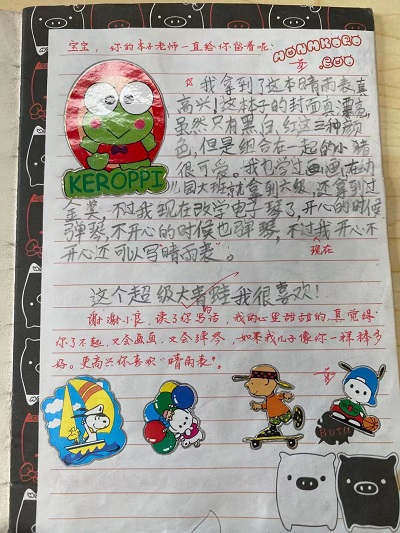 宝宝，你的本子老师一直给你留着呢！
MONOKURO
BOO
我拿到了这本晴雨表真
高兴！这本子的封面真漂亮，
虽然只有黑、白、红这三种颜
色，但是组合在一起的小猪
很可爱。我也学过画画，在幼儿
KEROPPI
园大班就拿到六级，还拿到过
金奖，不过我现在改学电子琴了，开心的时候
弹琴，不开心的时候也弹琴，不过我开心不
现在
开心还可以写晴雨表。
这个超级大青蛙我很喜欢！
谢谢小良，读了你写的话，我的心里甜甜的，真觉得
你了不起，又会画画，又会弹琴，如果我儿子像你一样棒多
好。更高兴你喜欢“晴雨表”。